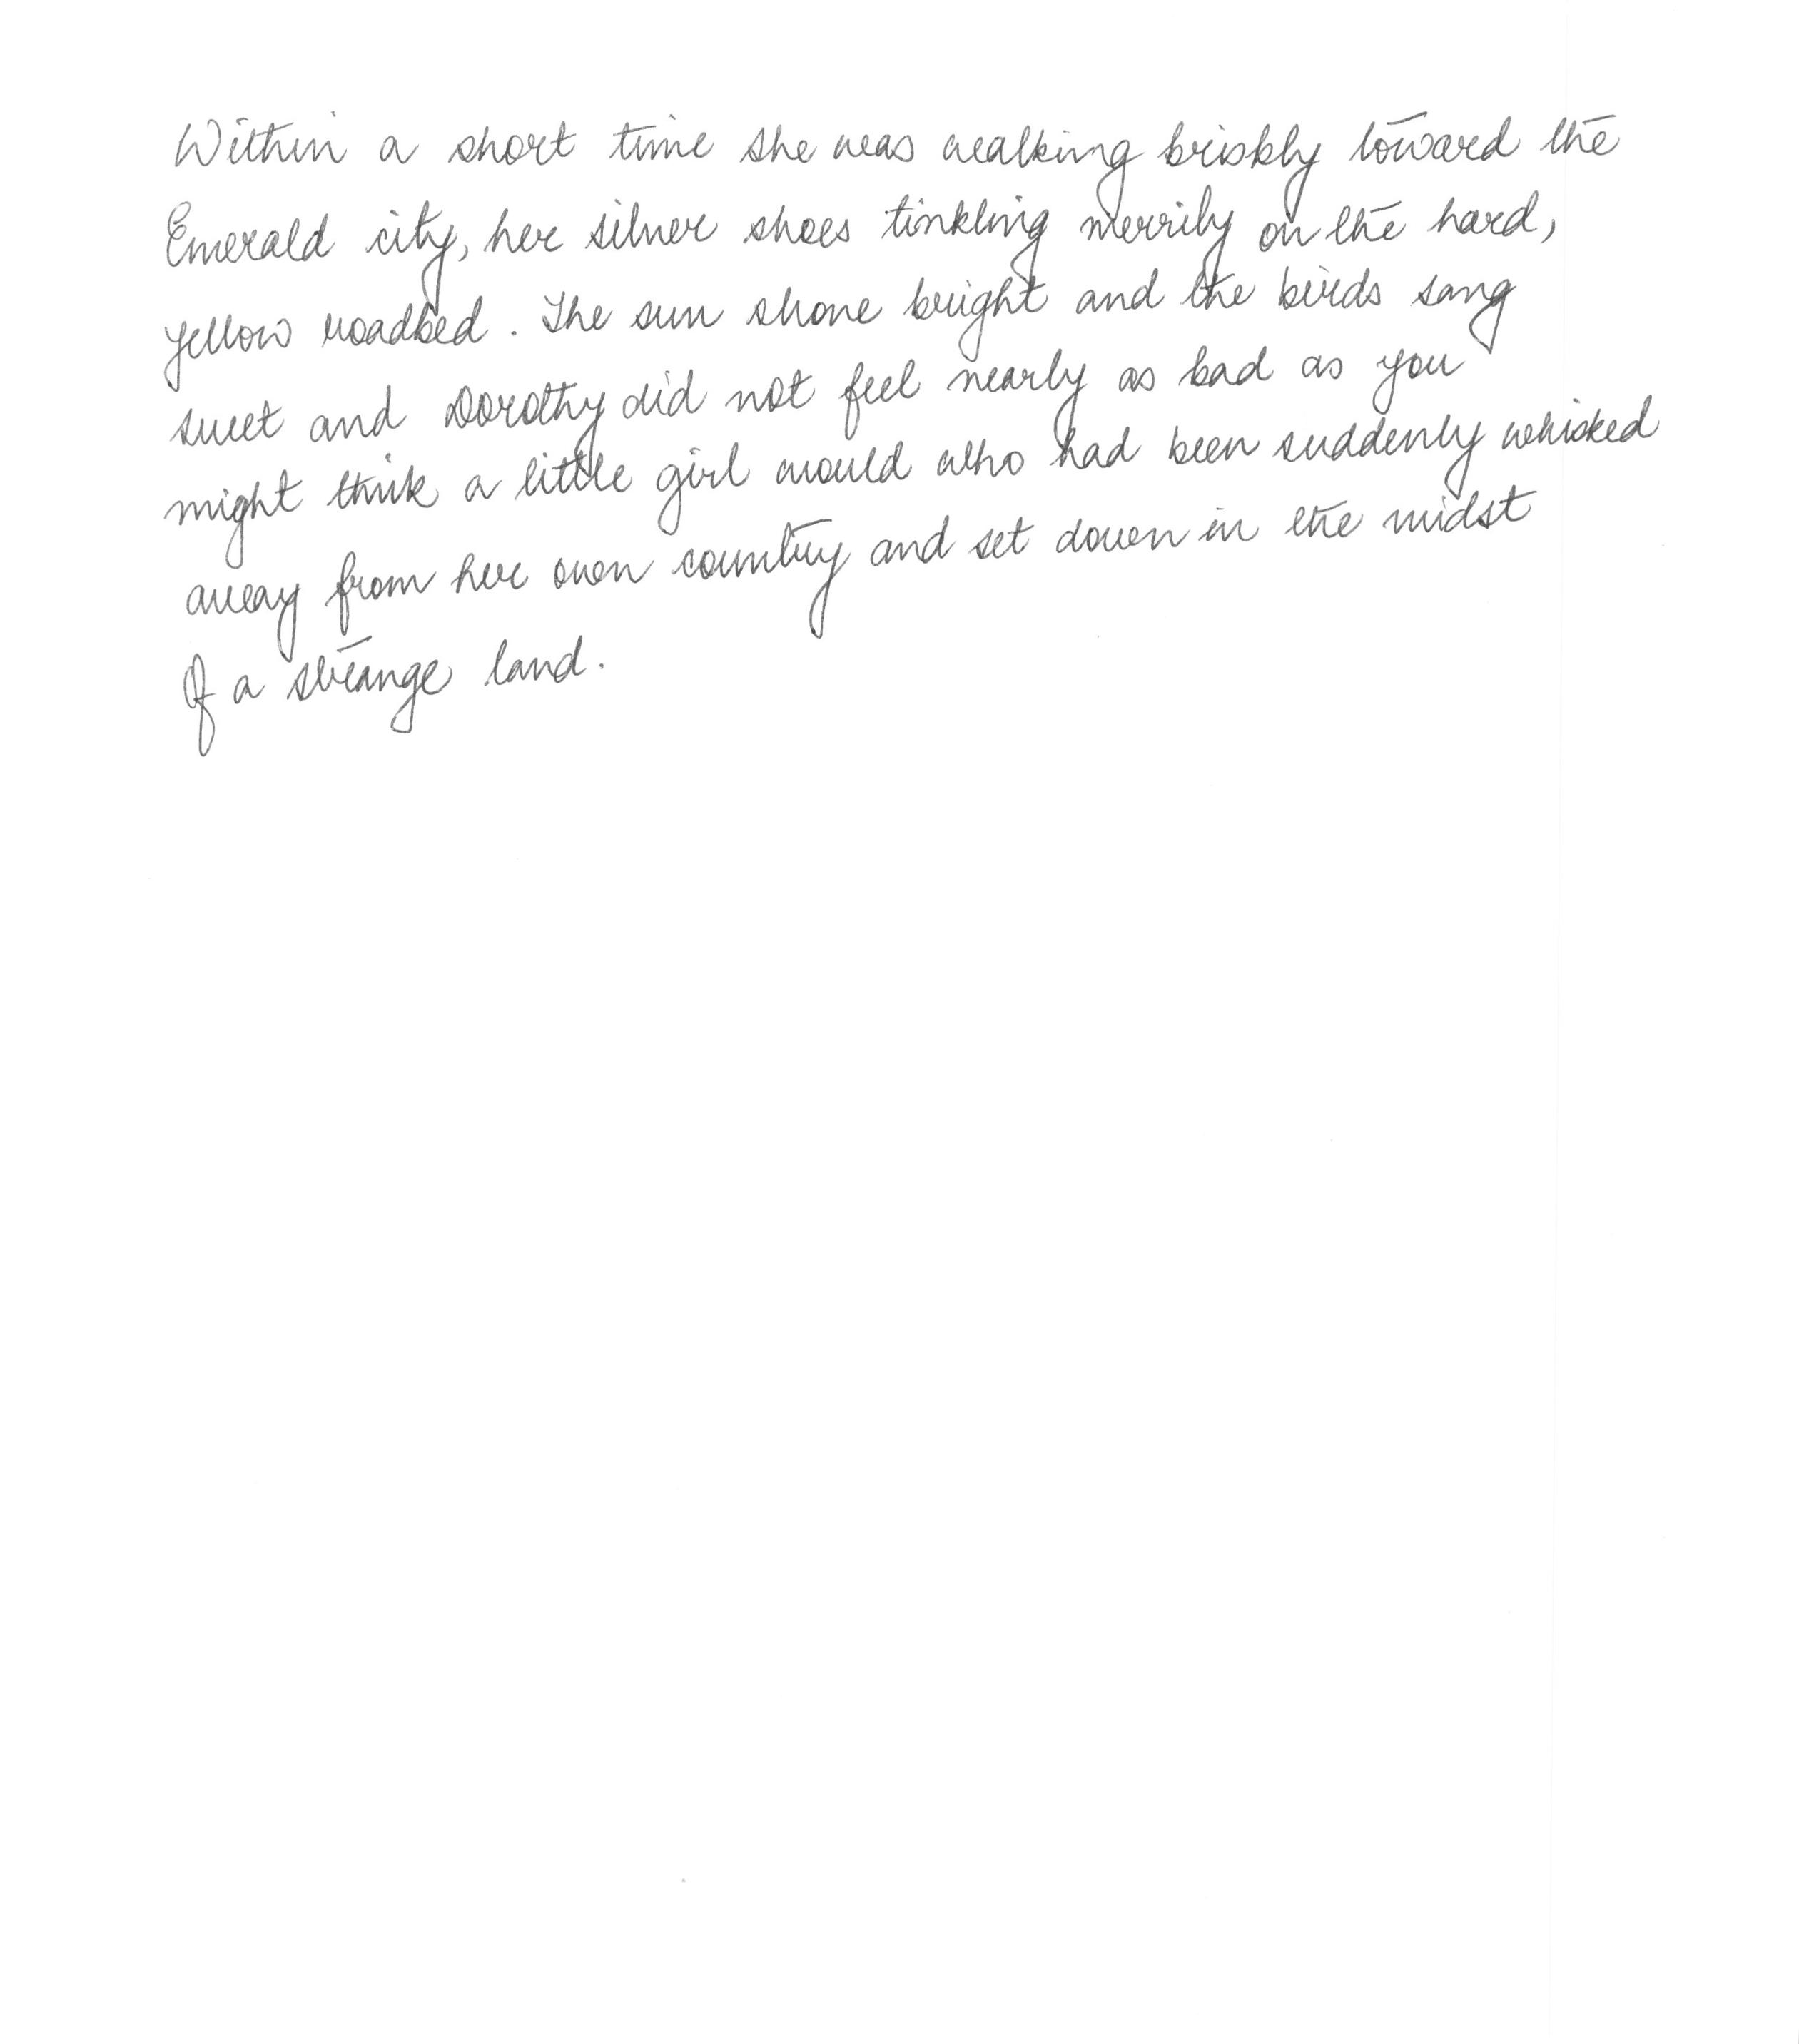 Within a short time she was walking briskly toward the
Emerald city, her silver shoes tinkling merrily on the hard,
yellow roadbed. The sun shone bright and the birds sang
sweet and Dorothy did not feel nearly as bad as you
might think a little girl would who had been suddenly whisked
away from her own country and set down in the midst
of a strange land.